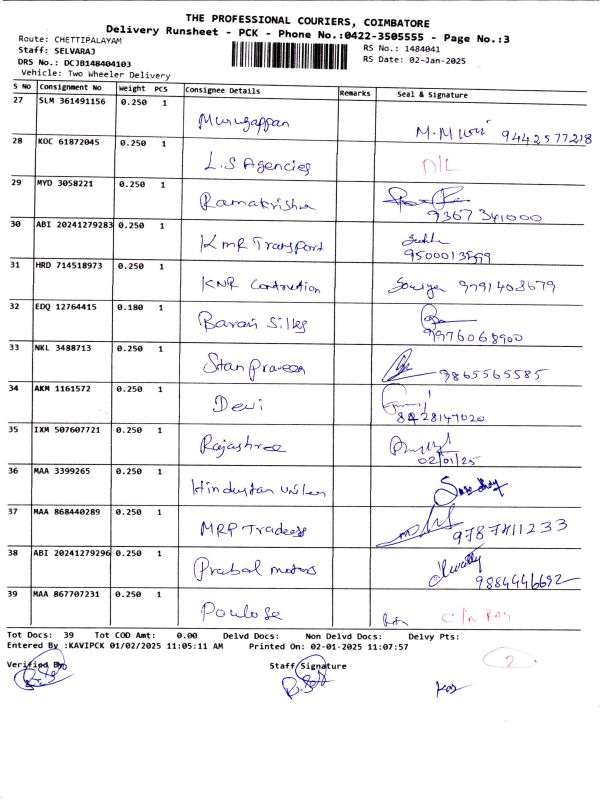 THE PROFESSIONAL COURIERS, COIMBATORE
Delivery Runsheet - PCK - Phone No.:0422-3505555 - Page No.:3
Route: CHETTIPALAYAM
Staff: SELVARAJ
RS No.: 1484041
DRS No.: DCJB148404103
RS Date: 02-Jan-2025
Vehicle: Two Wheeler Delivery
S No Consignment No Weight PCS Consignee Details Remarks Seal & Signature
27 SLM 361491156 0.250 1 Murugappan 9442577218
28 KOC 61872045 0.250 1 L.S Agencies D/L
29 MYD 3058221 0.250 1 Ramakrishna 9367341000
30 ABI 20241279283 0.250 1 KMR Transport
31 HRD 714518973 0.250 1 KNR Contruction 9791408679
32 EDQ 12764415 0.180 1 Barani Silks 9976068900
33 NKL 3488713 0.250 1 9865565585
34 AKM 1161572 0.250 1 Devi 8428147020
35 IXM 507607721 0.250 1 Rajashree 02/01/25
36 MAA 3399265 0.250 1 Hindustan
37 MAA 868440289 0.250 1 MRP Traders 9787411233
38 ABI 20241279296 0.250 1 Prabal motors 9884446692
39 MAA 867707231 0.250 1 Poulose
Tot Docs: 39 Tot COD Amt: 0.00 Delvd Docs: Non Delvd Docs: Delvy Pts:
Entered By :KAVIPCK 01/02/2025 11:05:11 AM Printed On: 02-01-2025 11:07:57
2
Verified By Staff Signature